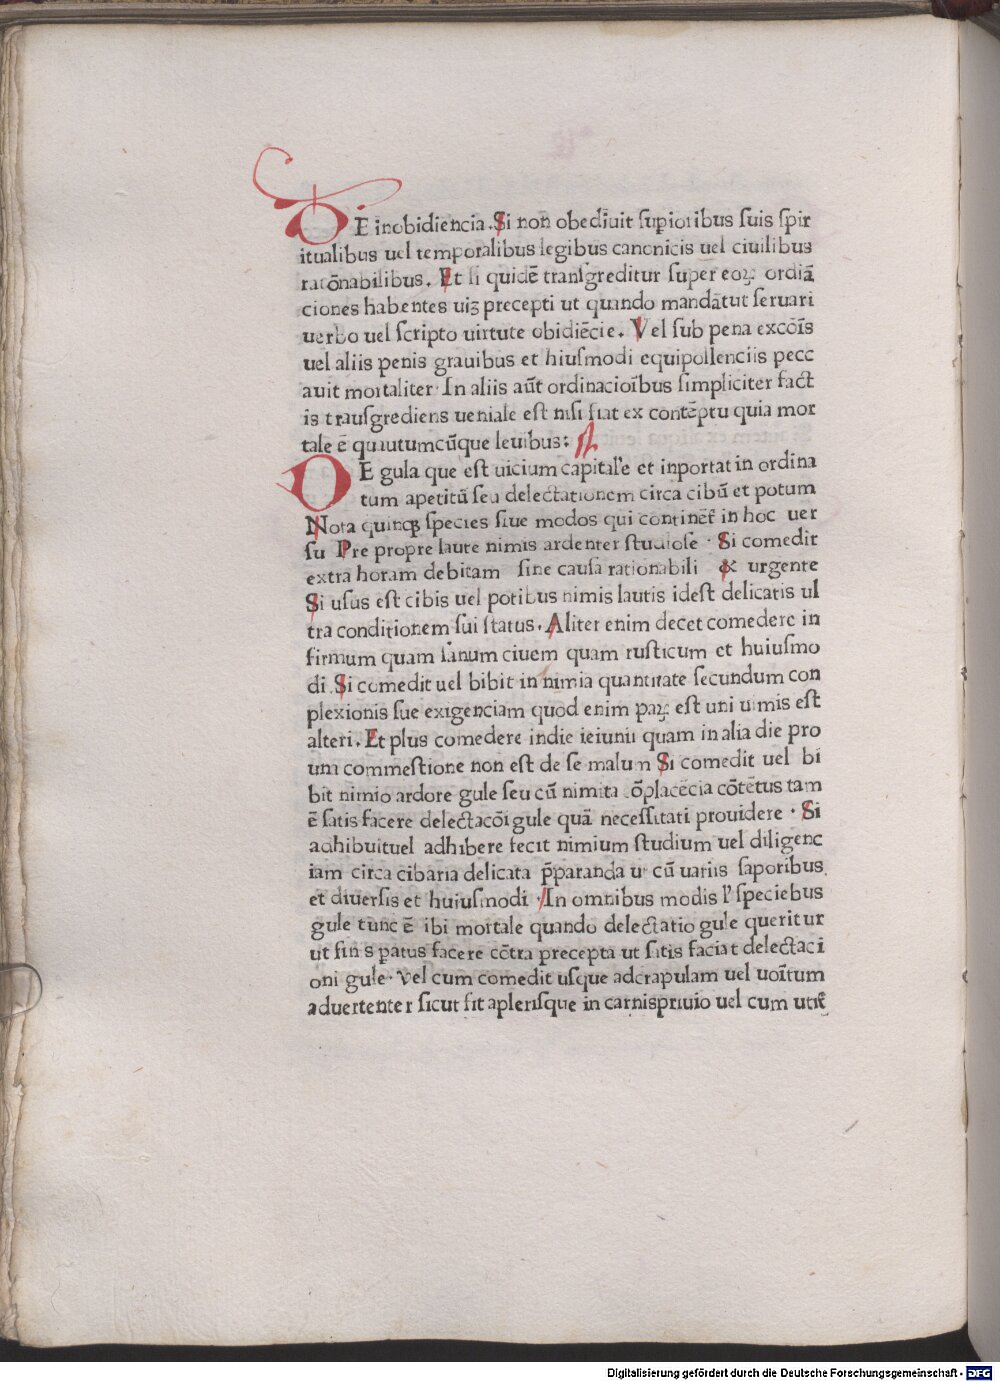 DE inobidiencia. Si non obediuit supioribus suis spir
itualibus uel temporalibus legibus canonicis uel ciuilibus
racōnabilibus. Et si quidē transgreditur super eoꝝ ordiā
ciones habentes uiꝫ precepti ut quando mandātut seruari
uerbo uel scripto uirtute obidiēcie. Vel sub pena excōis
uel aliis penis grauibus et hiusmodi equipollenciis pecc
auit mortaliter· In aliis aūt ordinacioībus simpliciter fact
is trausgrediens ueniale est nisi fiat ex contēptu quia mor
tale ē quautumcūque leuibus:
DE gula que est uicium capitale et inportat in ordina
tum apetitū seu delectationem circa cibū et potum
Nota quinqꝫ species siue modos qui continēt in hoc uer
su Pre propre laute nimis ardenter studiose · Si comedit
extra horam debitam sine causa rationabili & urgente
Si usus est cibis uel potibus nimis lautis idest delicatis ul
tra conditionem sui status. Aliter enim decet comedere in
firmum quam sanum ciuem quam rusticum et huiusmo
di. Si comedit uel bibit in nimia quantitate secundum con
plexionis sue exigenciam quod enim paꝝ est uni uimis est
alteri. Et plus comedere indie ieiunii quam in alia die pro
una commestione non est de se malum Si comedit uel bi
bit nimio ardore gule seu cū nimita ōplacēcia cōtētus tam
ē satis facere delectacōi gule quā necessitati prouidere · Si
adhibuituel adhibere fecit nimium studium uel diligenc
iam circa cibaria delicata p̄paranda ut cū uariis saporibus
et diuersis et huiusmodi · In omnibus modis l' speciebus
gule tunc ē ibi mortale quando delectatio gule querit ur
ut sin s patus facere cōtra precepta ut satis facia t delectaci
oni gule· Vel cum comedit usque adcrapulam uel uoītum
aduertente r sicut fit aplerisque in carnispriuio uel cum
Digitalisierung gefördert durch die Deutsche Forschungsgemeinschaft - DFG